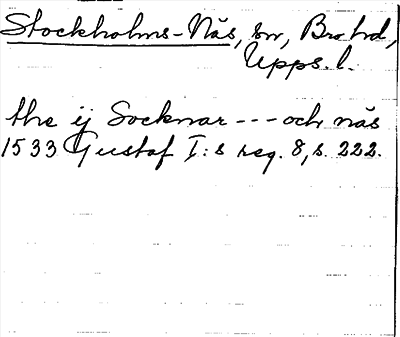 Stockholms-Näs, sn, Bro hd,
Upps. l.
the ij Socknar --- och näs
1533 Gustaf I:s reg. 8, s. 222.